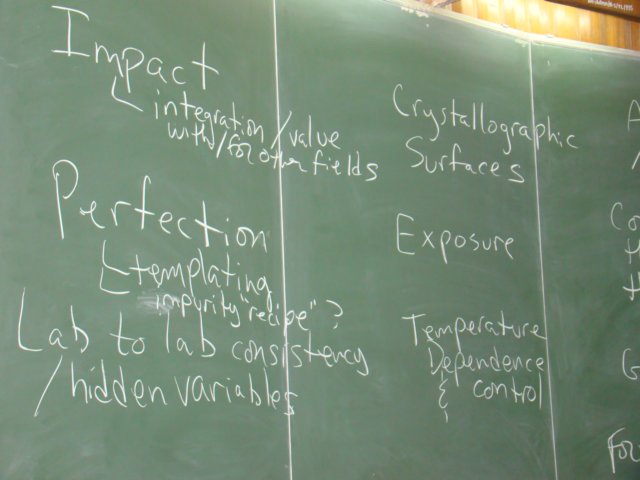 Impact
integration/value
with/for other fields
Perfection
templating,
impurity "recipe"?
Lab to lab consistency
/hidden variables
Crystallographic
Surfaces
Exposure
Temperature
Dependence
& control
A
Co
G
For